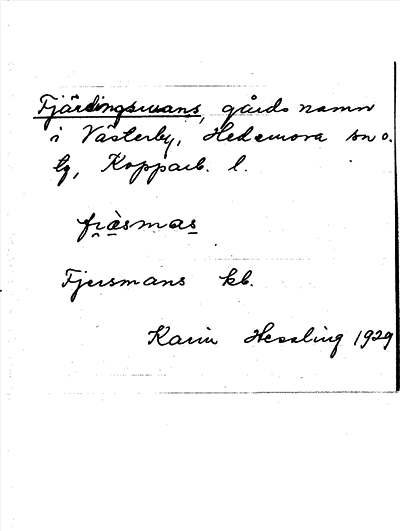 Fjärdingsmans, gårdsnamn
i Västerby, Hedemora sn o.
tg, Kopparb. l.
fjæ̀smas
Fjersmans kb.
Karin Hessling 1929